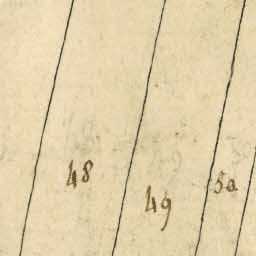 48
49
50